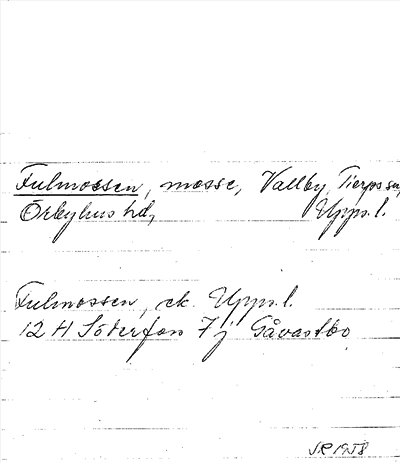 Fulmossen, mosse, Vallby, Tierps sn,
Örbyhus hd, Upps. l.
Fulmossen, ek. Upps. l.
12 H Söderfors 7 j Gåvastbo
1958